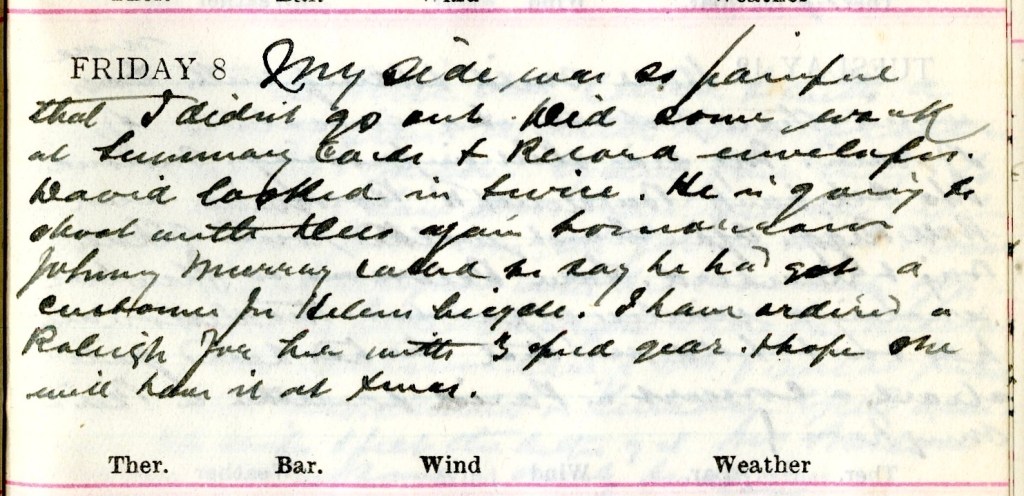 Ther. Bar. Wind Weather
FRIDAY 8 My side was so painful
that I didn't go out. Did some work
at Summary Cards & Record envelopes.
David looked in twice. He is going to
shoot with again tomorrow
Johnny Murray called to say he had got a
customer for Helens bicycle. I have ordered a
Raleigh for her with 3 speed gear. I hope she
will have it at Xmas.
Ther. Bar. Wind Weather